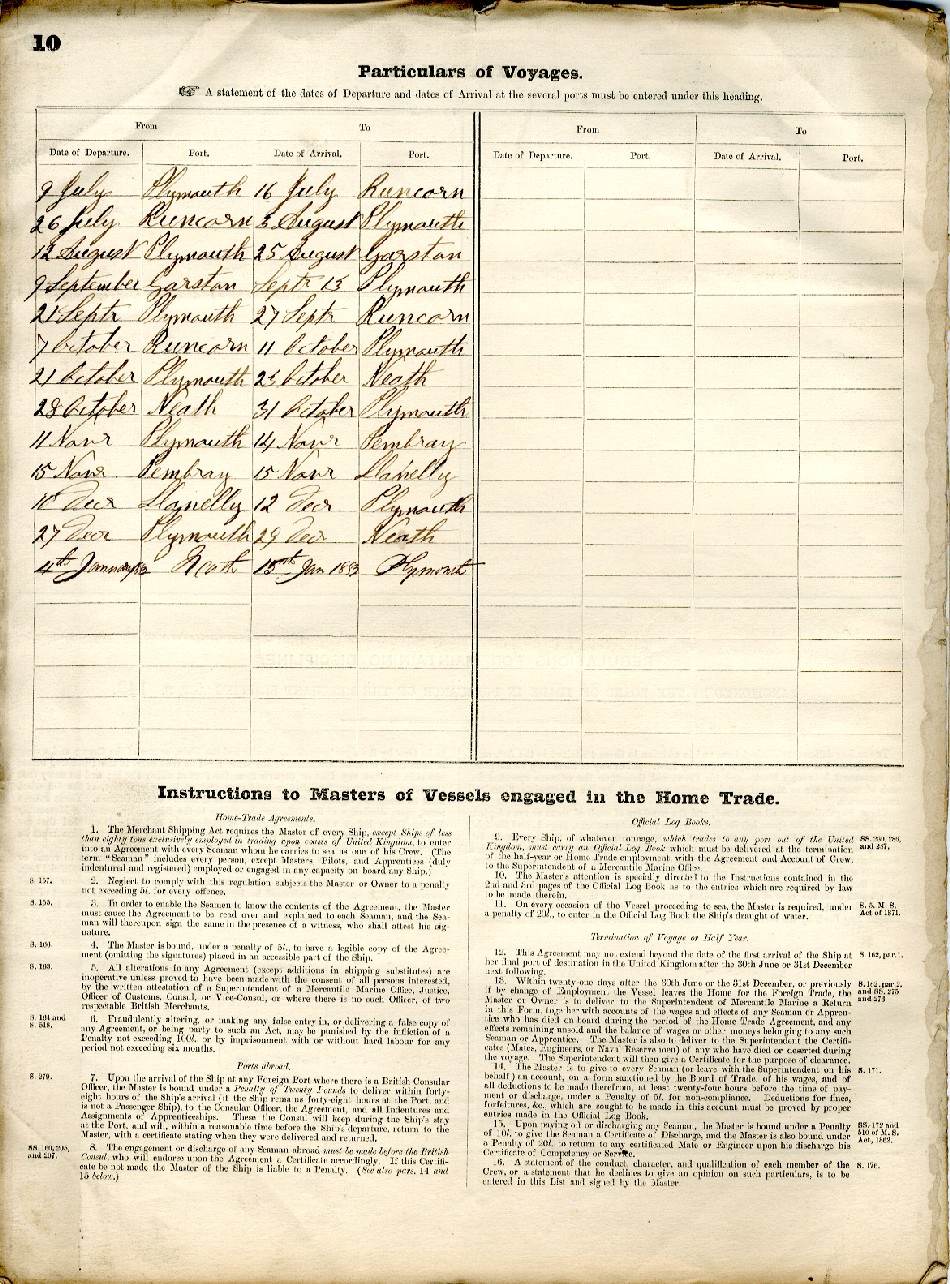 10
Particulars of Voyages.
A statement of the dates of Departure and dates of Arrival at the several ports must be entered under this heading.
From To From To
Date of Departure. Port. Date of Arrival. Port. Date of Departure. Port. Date of Arrival. Port.
9 July Plymouth 16 July Runcorn
26 July Runcorn 3 August Plymouth
12 August Plymouth 25 August Garston
9 September Garston Septr 13 Plymouth
21 Septr Plymouth 27 Septr Runcorn
7 October Runcorn 11 October Plymouth
21 October Plymouth 23 October Neath
28 October Neath 31 October Plymouth
11 Novr Plymouth 14 Novr Pembray
15 Novr Pembray 15 Novr Llanelly
10 Decr Llanelly 12 Decr Plymouth
27 Decr Plymouth 29 Decr Neath
4th January Neath 15th Jan Plymouth
Instructions to Masters of Vessels engaged in the Home Trade.
Home-Trade Agreements.
1. The Merchant Shipping Act requires the Master of every Ship, except Ships of less
than eighty tons exclusively employed in trading upon coasts of United Kingdom, to enter
into an Agreement with every Seaman whom he carries to sea as one of his Crew. (The
term "Seaman" includes every person, except Masters, Pilots, and Apprentices (duly
indentured and registered) employed or engaged in any capacity on board any Ship.)
S. 157. 2. Neglect to comply with this regulation subjects the Master or Owner to a penalty
not exceeding 5l. for every offence.
S. 155. 3. To enable the Seamen to know the contents of the Agreement, the Master
must cause the Agreement to be read over and explained to each Seaman, and the Sea-
man will thereupon sign the same in the presence of a witness, who shall attest his sig-
nature.
S. 166. 4. The Master is bound, under a penalty of 5l., to have a legible copy of the Agree-
ment (omitting the signatures) placed in an accessible part of the Ship.
S. 163. 5. All alterations in any Agreement (except additions in shipping substitutes) are
inoperative unless proved to have been made with the consent of all persons interested,
by the written attestation of a Superintendent of a Mercantile Marine Office, Justice,
Officer of Customs, Consul, or Vice-Consul, or where there is no such Officer, of two
respectable British Merchants.
S. 164 and S. 518. 6. Fraudulently altering, or making any false entry in, or delivering a false copy of
any Agreement, or being party to such an Act, may be punished by the infliction of a
Penalty not exceeding 100l. or by imprisonment with or without hard labour for any
period not exceeding six months.
Ports abroad.
S. 279. 7. Upon the arrival of the Ship at any Foreign Port where there is a British Consular
Officer, the Master is bound under a Penalty of Twenty Pounds to deliver within forty-
eight hours of the Ship's arrival (if the Ship remains forty-eight hours at the Port, and
is not a Passenger Ship), to the Consular Officer, the Agreement, and all Indentures and
Assignments of Apprenticeships. These the Consul will keep during the Ship's stay
at the Port, and will, within a reasonable time before the Ship's departure, return to the
Master, with a certificate stating when they were delivered and returned.
8. The engagement or discharge of any Seaman abroad must be made before the British
Consul, who will endorse upon the Agreement a Certificate accordingly. If this Certifi-
cate be not made the Master of the Ship is liable to a Penalty. (See also pars. 14 and
15 below.)
Official Log Books.
9. Every Ship, of whatever tonnage, which trades to any port out of the United
Kingdom, must carry an Official Log Book which must be delivered at the termination
of the half-year or Home Trade employment with the Agreement and Account of Crew,
to the Superintendent of a Mercantile Marine Office.
10. The Master's attention is specially directed to the Instructions contained in the
2nd and 3rd pages of the Official Log Book as to the entries which are required by law
to be made therein.
11. On every occasion of the Vessel proceeding to sea, the Master is required, under S. 5, M. S. Act of 1871.
a penalty of 20l., to enter in the Official Log Book the Ship's draught of water.
Termination of Voyage or Half Year.
12. This Agreement may not extend beyond the date of the first arrival of the Ship at S. 162, par. 1.
her final port of destination in the United Kingdom after the 30th June or 31st December
next following.
13. Within twenty-one days after the 30th June or the 31st December, or previously S. 162, par. 2.
if by change of Employment the Vessel leaves the Home for the Foreign Trade, the and SS. 275
Master or Owner is to deliver to the Superintendent of Mercantile Marine a Return
in this Form, together with accounts of the wages and effects of any Seaman or Appren-
tice who has died on board during the period of the Home Trade Agreement, and any
effects remaining unsold and the balance of wages or other moneys belonging to any such
Seaman or Apprentice. The Master is also to deliver to the Superintendent the Certifi-
cates (Mates, Engineers, or Naval Reserve men) of any who have died or deserted during
the voyage. The Superintendent will then give a Certificate for the purpose of clearance.
14. The Master is to give to every Seaman (or leave with the Superintendent on his S. 171.
behalf) an account, on a form sanctioned by the Board of Trade, of his wages, and of
all deductions to be made therefrom, at least twenty-four hours before the time of pay-
ment or discharge, under a Penalty of 5l. for non-compliance. Deductions for fines,
forfeitures, &c., which are sought to be made in this account must be proved by proper
entries made in the Official Log Book.
15. Upon paying off or discharging any Seaman, the Master is bound under a Penalty SS. 172 and
of 10l. to give the Seaman a Certificate of Discharge, and the Master is also bound under of M. S.
a Penalty of 20l. to return to any certificated Mate or Engineer upon his discharge his Act, 1862.
Certificate of Competency or Service.
16. A statement of the conduct, character, and qualification of each member of the S. 176.
Crew, or a statement that he declines to give an opinion on such particulars, is to be
entered in this List and signed by the Master.